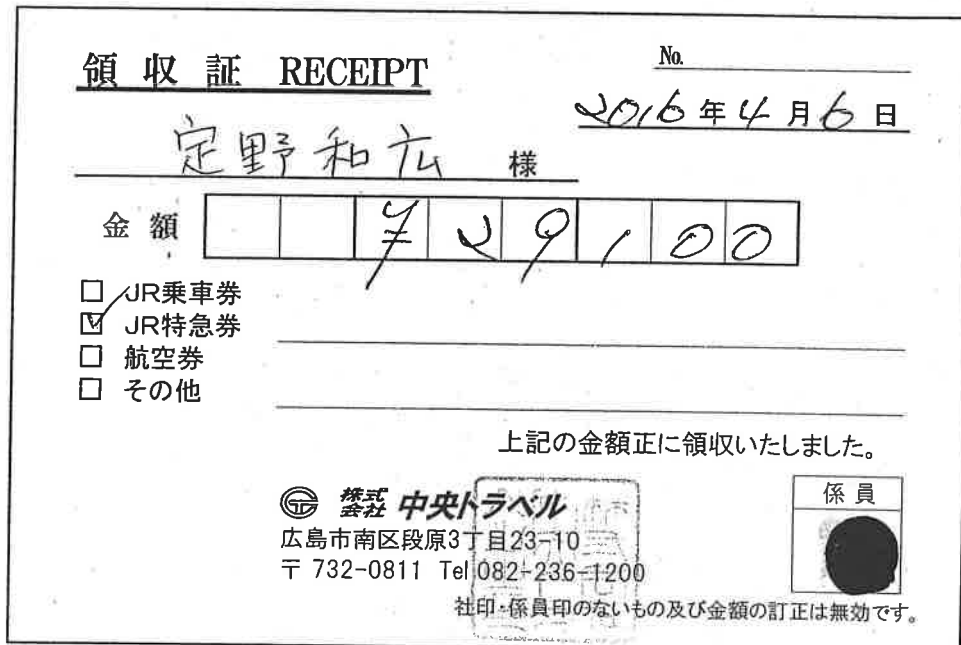 領収証 RECEIPT
No.
2016年4月6日
定野和広 様
金額 ¥29,100
JR乗車券
JR特急券
航空券
その他
上記の金額正に領収いたしました。
株式会社 中央トラベル
係員
広島市南区段原3丁目23-10
〒732-0811 Tel 082-236-1200
社印・係員印のないもの及び金額の訂正は無効です。